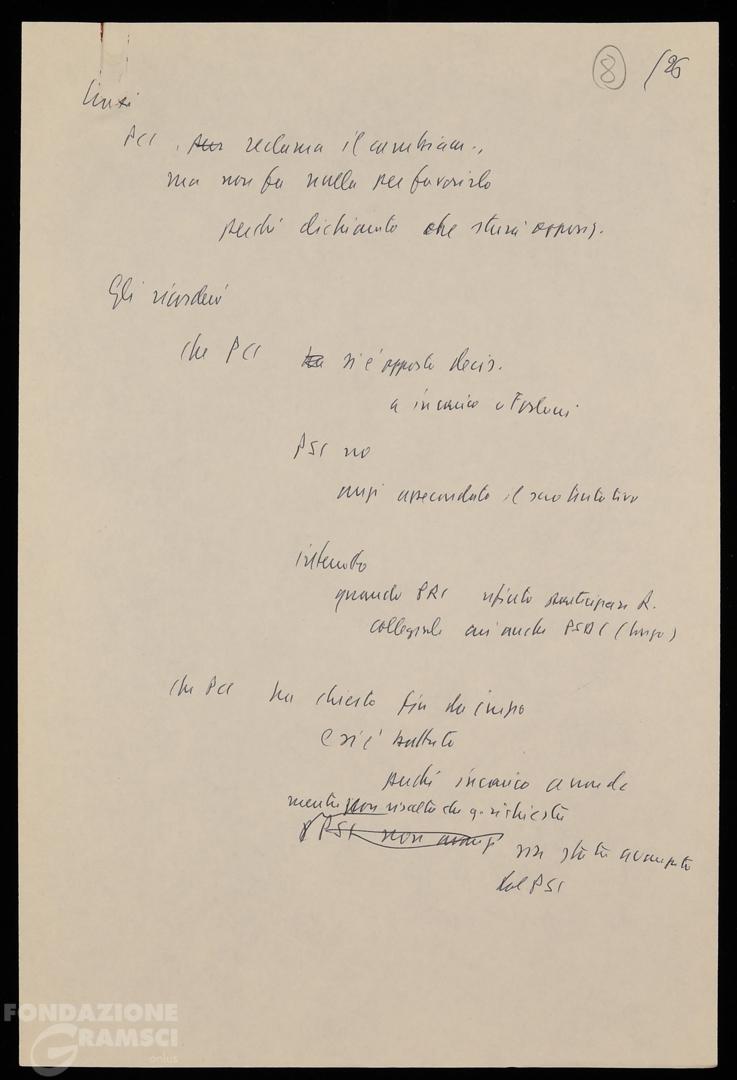 8 /26
PCI, reclama il cambiam.,
ma non fa nulla per favorirlo
perché dichiarato che starà opposiz.
Gli ricorderei
che PCI si è opposto decis.
a incarico a Forlani
PSI no
anzi assecondato il suo tentativo
interrotto
quando PRI rifiutò partecipare R.
collegiale cui anche PSDI (Longo)
che PCI ha chiesto fin da inizio
e si è battuto
perché incarico a non dc
mentre non risulta che q. richiesta
PSI non avanzi sia stata avanzata
dal PSI
FONDAZIONE
GRAMSCI
onlus